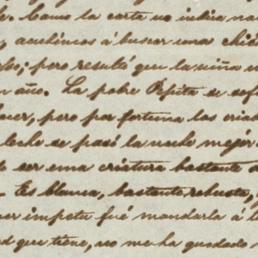 . Como la carta no indica na
, acudimos á buscar una chi
; pero resultó que la niña
año. La pobre Pepita se so
hacer, pero por fortuna las cria
leche se pasó la noche mejor
ser una criatura bastante
. Es blanca, bastante robusta,
impetu fué mandarla á
que tiene, no me ha quedado